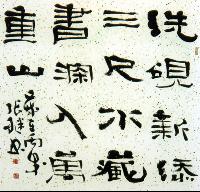 洗硯新添
三尺水藏
書深入萬
重山